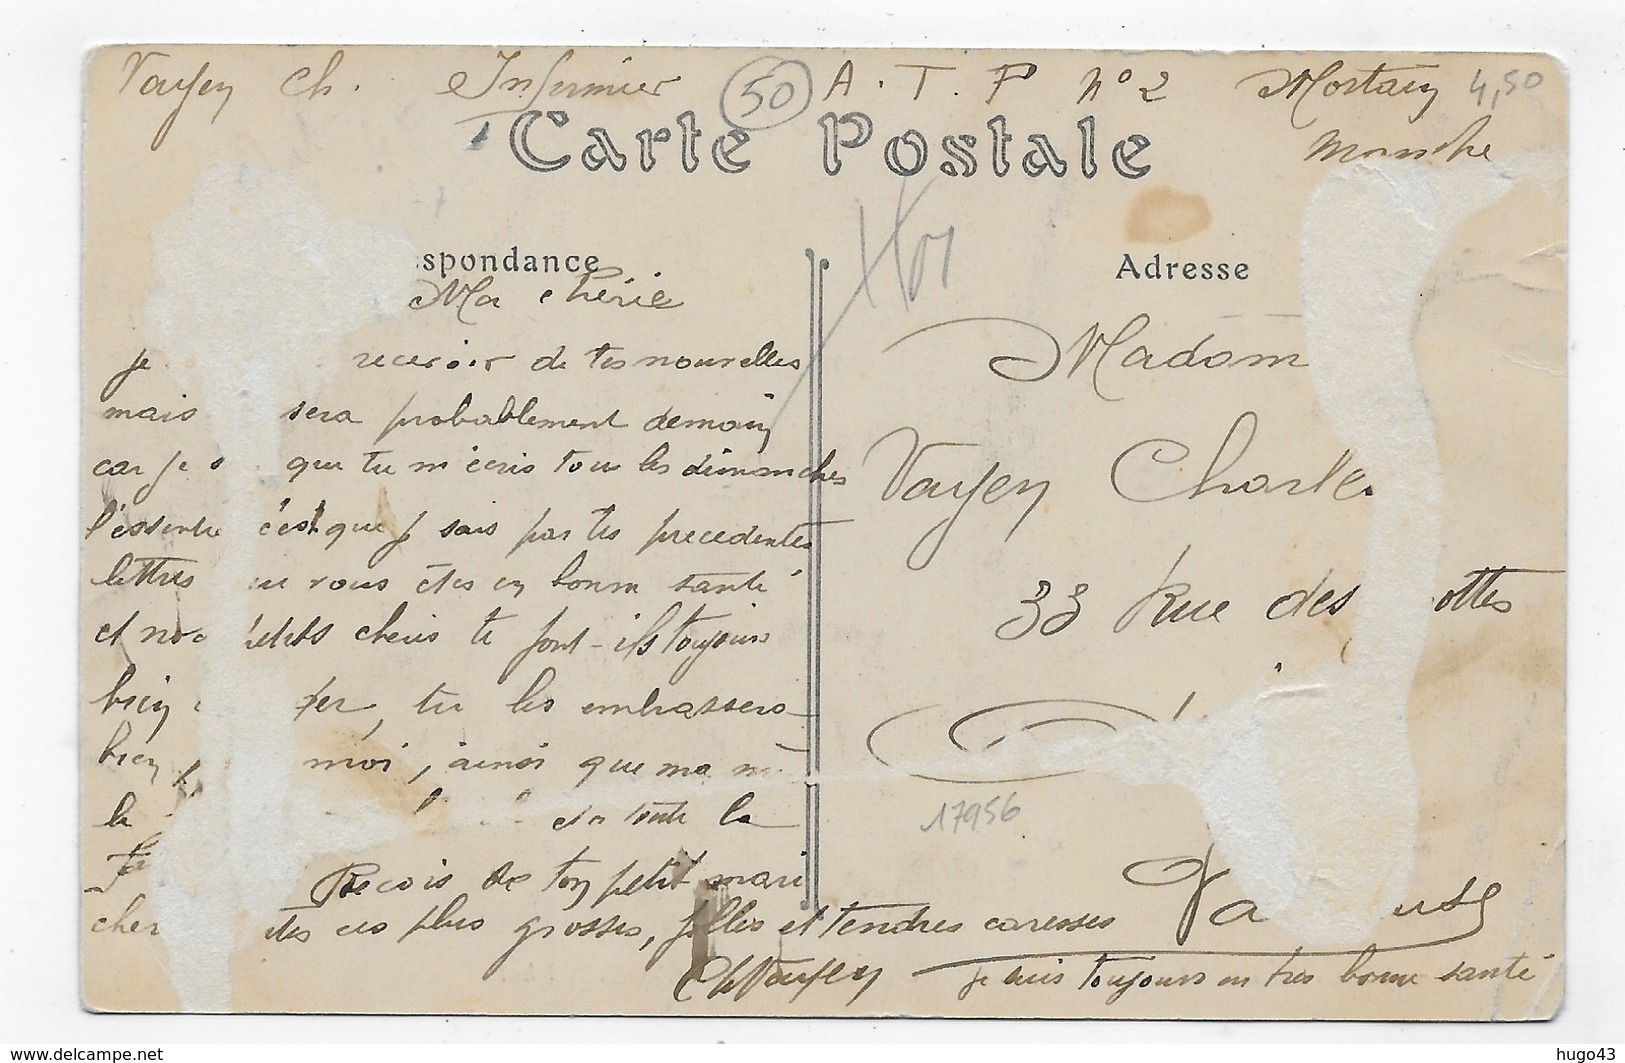 Vayfen Ch. Infirmier 50 A.T.P n° 2 Mortain 4,50
Manche
Carte Postale
spondance
Adresse
Ma cherie
je recevoir de tes nouvelles
mais sera probablement demain
car je que tu m'ecris tous les dimanches
l'essentie c'est que j sais par tes precedentes
lettres ue vous étes en bonne santé
et nos petits cheris te font-ils toujours
bien er, tu les embrassera
bien moi, ainsi que ma
la toute la
Recois de ton petit mari
cher tes ces plus grosses, folles et tendres caresses
Ch Vayfen je suis toujours en tres bonne santé
Madam
Vayfen Charle
33 Rue des ottes
17956
Va use
hugo43
www.delcampe.net